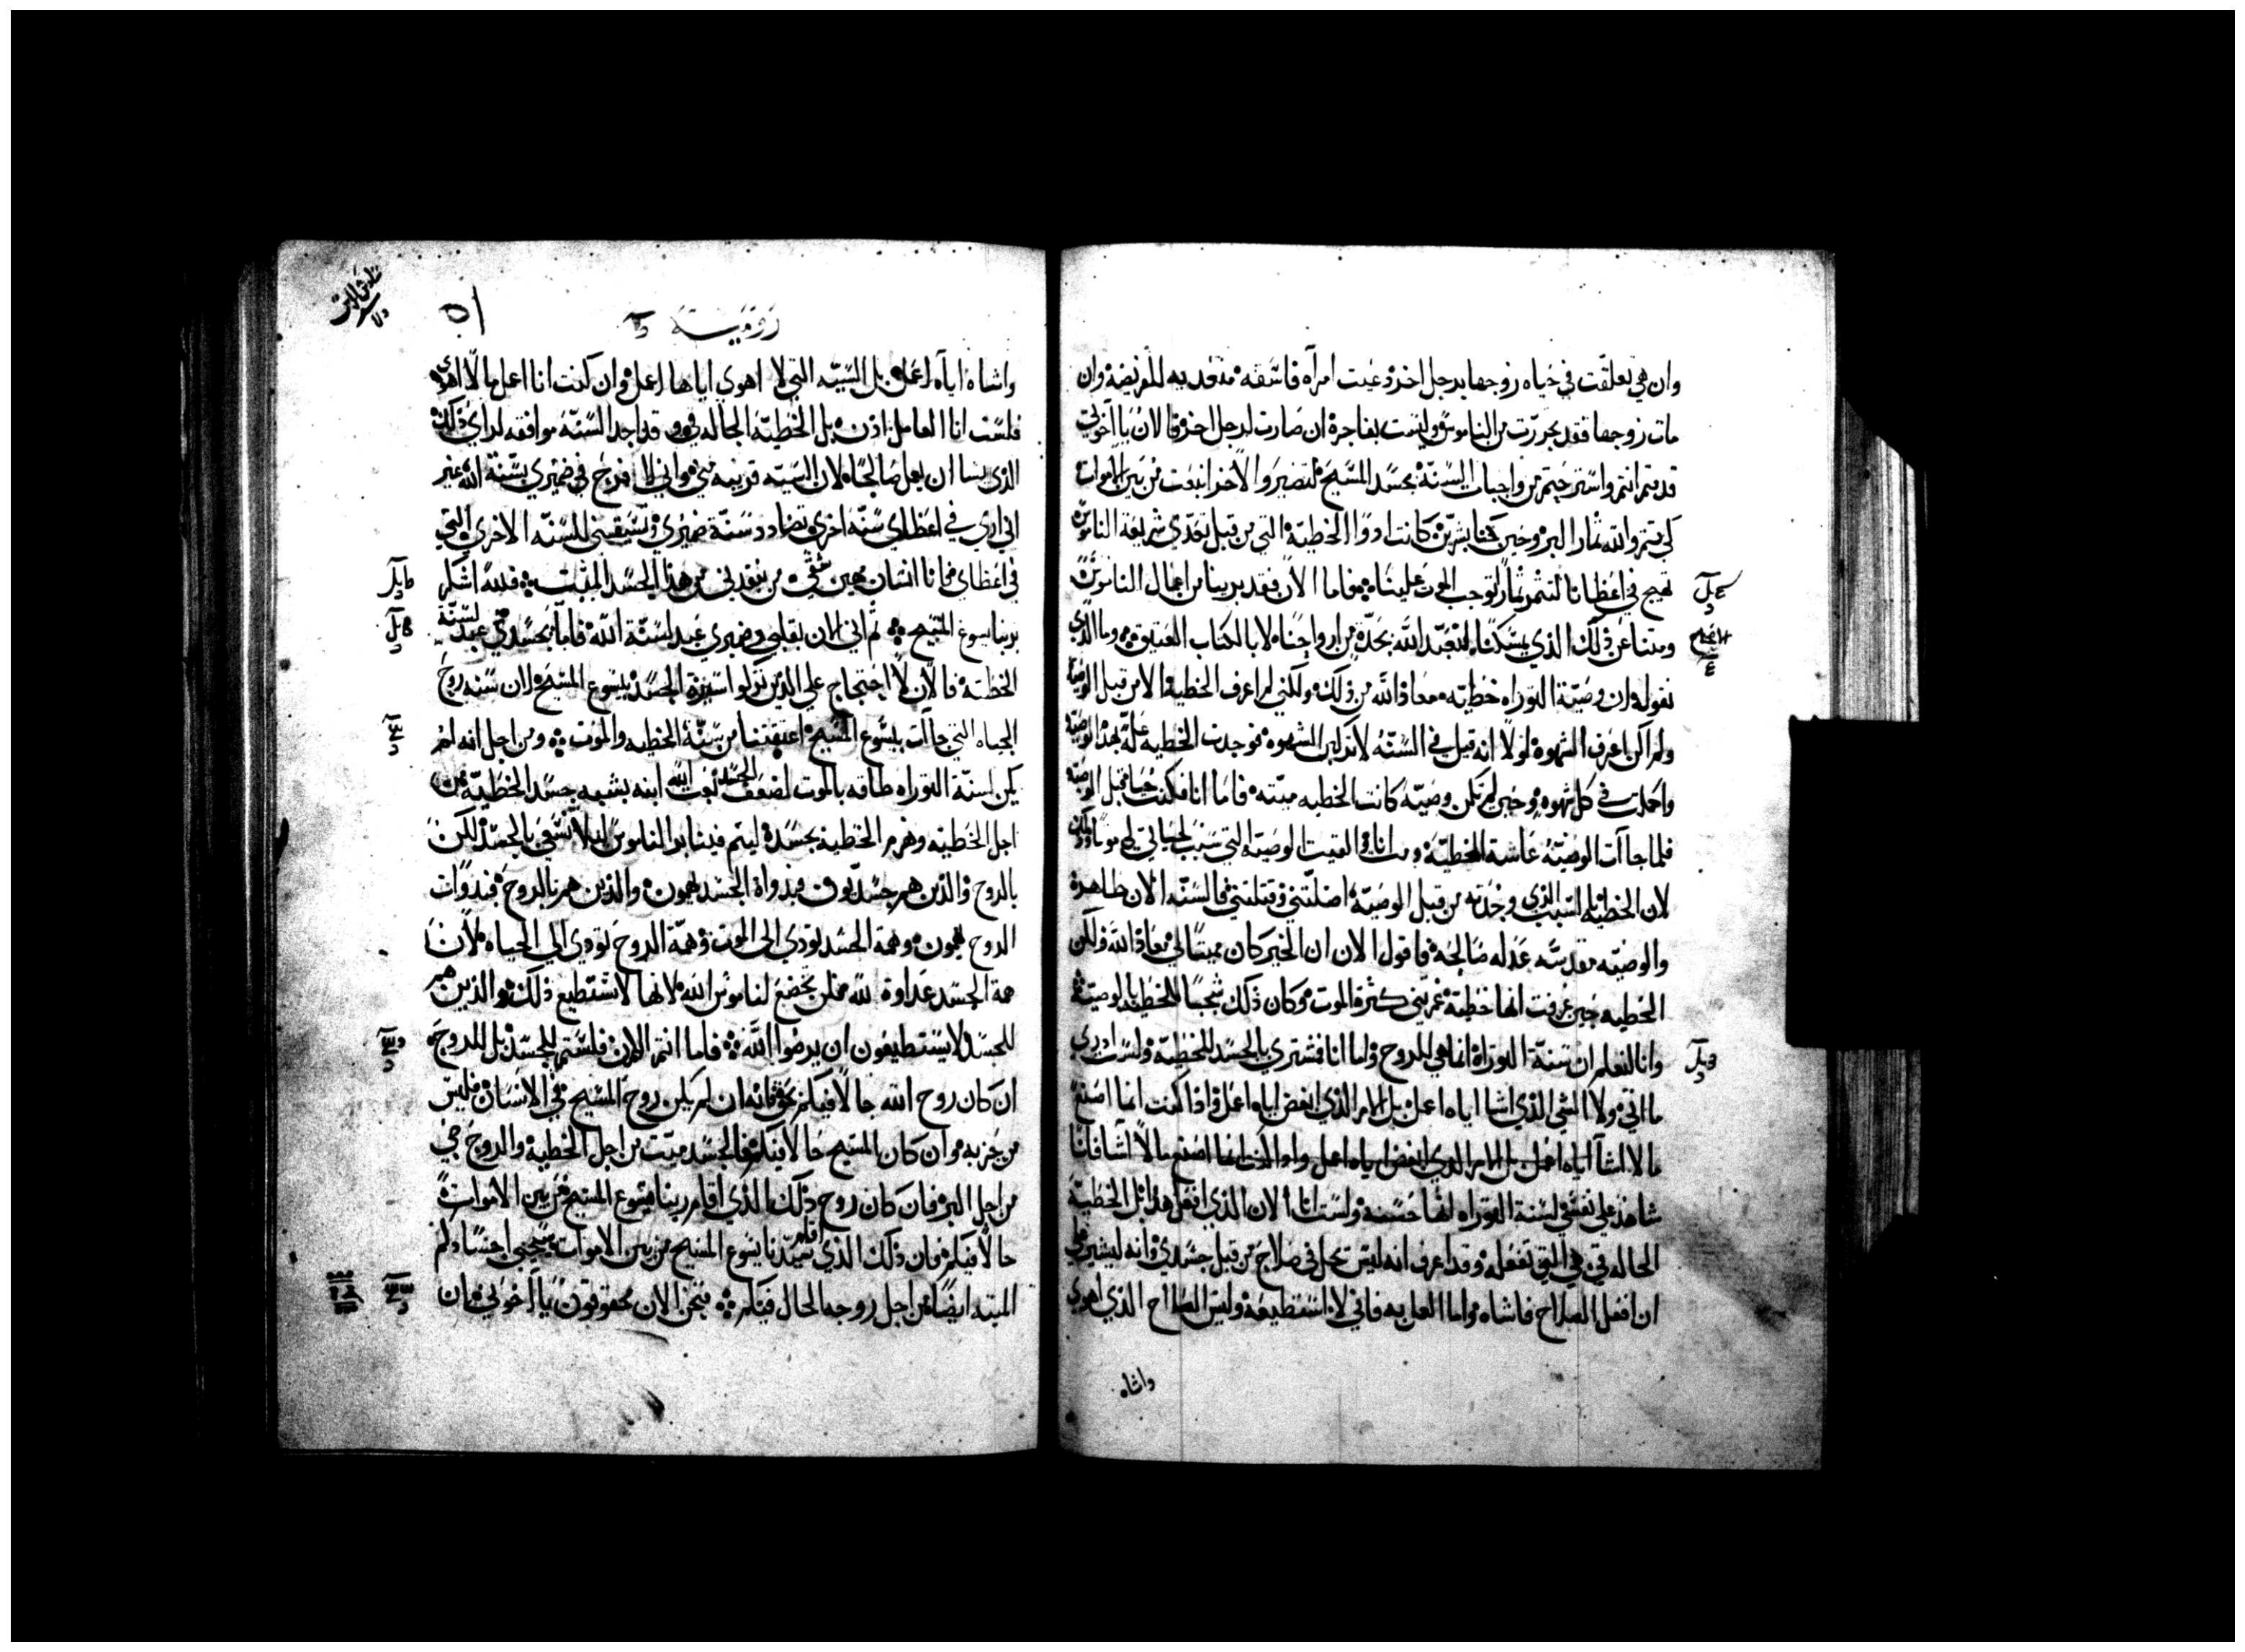 وان هي تعلقت في حياه زوجها برجل اخر دعيت امرآه فاسقه متعديه للفريضه وان
مات زوجها فقد تحررت من الناموس وليست بفاجره ان صارت لرجل اخر فالان يا اخوتي
قد متم انتم واسترحتم من واجبات السنّة بجسد المسيح لتصيروا لاخر انبعث من بين الاموات
كي تثمروا لله ثمار البر وحين كنا بشريّن كانت ادوا الخطيّة التي من قبل تعدّي شريعة الناموس
تهيج في اعظانا لتثمر ثمار توجب الموت علينا فاما الان فقد برينا من اعمال الناموس
ومتنا عن ذلك الذي يمسكنا لنتعبّد الله بجدّة من ارواحنا لا بالكتاب العتيق وما الذي
نقوله ان وصيّة التوراه خطيّه معاذ الله من ذلك ولكني لم اعرف الخطية الا من قبل الوصيّه
ولم اكن اعرف الشهوه لولا انه قيل في السنّه لا تركبن الشهوه فوجدت الخطيه علّة بهذه الوصيّه
واكملت في كل شهوه وحين لم تكن وصيّة كانت الخطيه ميته فاما انا فكنت حيا قبل الوصيّه
فلما جاآت الوصيّه عاشة الخطيّة ومت انا والفيت الوصيّه التي سبب لحياتي لي موتا وذلك
لان الخطيّه السبب الذي وجدته من قبل الوصيّة اضلّتني وقتلتني فالسنّه الان طاهرة
والوصيّه مقدسّه عدله صالحه فاقول الان ان الخير كان مميتا لي معاذ الله ولكن
الخطيه حين عرفت انها خطية كثرة الموت وكان ذلك للخطيه بالوصيّة
وانا لنعلم ان سنّة التوراة انما هي للروح واما انا فمشتري بالجسد للخطيّة ولست ادري
ما اتي ولا الشي الذي اشا اياه اعمل بل الامر الذي ابغض اياه اعمل واذا كنت انما اصنع
ما لا اشآ اياه اعمل بل الامر الذي ابغض اياه اعمل واذا كنت انما اصنع ما لا اشا فانا
شاهد علي نفسي لسنة التوراه انها حسنه ولست انا الان الذي افعل هذا بل الخطيّة
الحاله في هي التي تفعله وقد اعرف انه ليس تحل في صلاح من قبل جسدي وانه ليسير علي
ان افعل الصلاح فاشاه واما العمل به فاني لا استطيعه وليس الصلاح الذي اهوي
واشاه
روميّة
٥١
واشاه اياه اعمل بل السّيّه التي لا اهوي اياها اعمل وان كنت انا اعمل ما لا اهوي
فلست انا العامل اذن بل الخطيّة الحاله في وقد اجد السّنّه موافقه لراي ذلك
الذي يشا ان يعمل صالحا لان السّيّه قريبه مني واني لافرح في ضميري بسّنة الله غير
اني اري في اعظاي سنّة اخري تضادد سنّة ضميري وتسبقني للسنّه الاخري التي
في اعظاي فانا انسان مهين شقي من ينقدني من هذا الجسد الميّت فلله اشكر
بربنا يسوع المسيح ثم اني الان بقلبي وضميري عبد لسنّة الله فاما بجسدي عبد لسنّة
الخطيّة فالان لا احتجاج علي الذين تركوا سيرة الجسد بيسوع المسيح لان سنّه روح
الحياه التي جاآت بيسوع المسيح اعتقتنا من سنّة الخطيه والموت ومن اجل انه لم
يكن لسنّة التوراه طاقه بالموت لضعف الجسد بعث الله ابنه بشبه جسد الخطيّة من
اجل الخطيّه وهزم الخطية بجسده ليتم فينا بر الناموس ليلا نسعي بالجسد لكن
بالروح فالذين هم جسديّون فبذواة الجسد يهمون والذين هم بالروح فبذوات
الروح يهمون وهمة الجسد تودي الى الموت وهمّة الروح تودي الي الحياه لان
همة الجسد عداوة لله فلن تخضع لناموس الله لانها لا تستطيع ذلك والذين هم
للجسد لا يستطيعون ان يرضوا الله فاما انتم الان فلستم للجسد بل للروح
ان كان روح الله حالا فيكم بحق فانه ان لم يكن روح المسيح في الانسان فليس
من حزبه وان كان المسيح حالا فيكم فالجسد ميت من اجل الخطية والروح حي
من اجل البر فان كان روح ذلك الذي اقام ربنا يسوع المسيح من بين الاموات
حالا فيكم فان ذلك الذي اقام سيّدنا يسوع المسيح من بين الاموات سيحيي اجسادكم
الميته ايضا من اجل روحه الحال فيكم فنحن الان محقوقون يا اخوتي ان